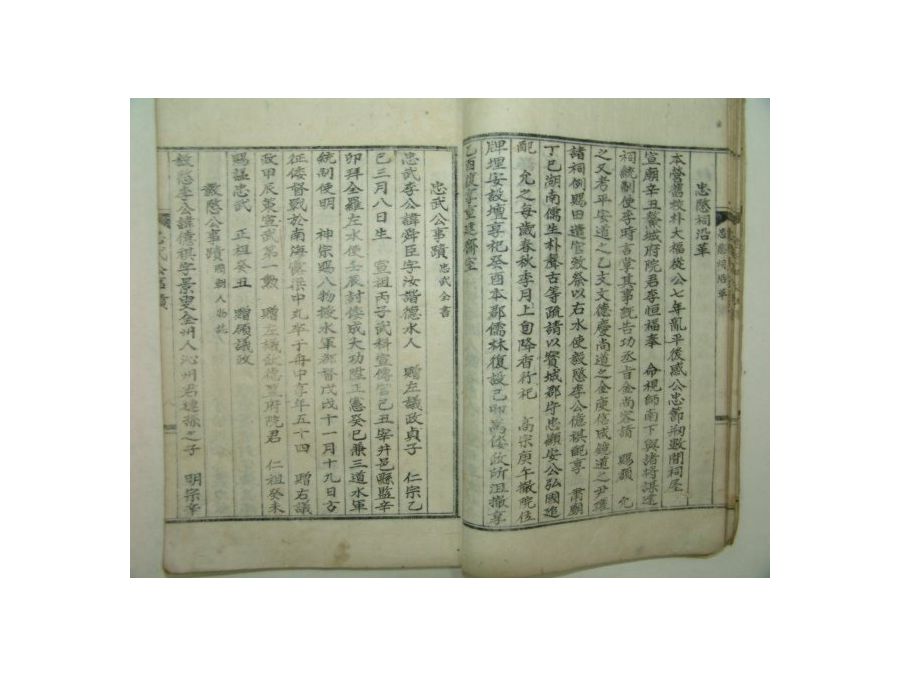 忠愍祠沿革
忠愍祠沿革
本營舊校朴大福從公七年亂平後感公忠節刱數間祠屋
宣廟辛丑鰲城府院君李恒福奉 命視師南下與諸將謀建
祠統制使李時言掌其事旣告功丞旨金尚容請 賜額 允
之又考平安道之乙支文德慶尚道之金庾信咸鏡道之尹瓘
諸祠例賜田遣官致祭以右水使毅愍李公億祺配享 肅廟
丁巳湖南儒生朴聲古等疏請以寶城郡守忠顯安公弘國追
配 允之每歲春秋季月上旬降香行祀 高宗庚午撤院位
牌埋安設壇享祀癸酉本郡儒林復設己卯爲倭政所沮撤享
乙酉復享重建齋室
忠武公事蹟 忠武全書
忠武李公諱舜臣字汝諧德水人 贈左議政貞子 仁宗乙
巳三月八日生 宣祖丙子武科宣傳官己丑宰井邑縣監辛
卯拜全羅左水使壬辰討倭成大功陞正憲癸巳兼三道水軍
統制使明 神宗賜八物授水軍都督戊戌十一月十九日古
征倭督戰於南海露梁中丸卒于舟中享年五十四 贈右議
政甲辰策宣武第一勳 贈左議政德豊府院君 仁祖癸未
賜謚忠武 正祖癸丑 贈領議政
毅愍公事蹟 國朝人物志
毅愍李公諱億祺字景叟全州人沁州君 孫之子 明宗辛